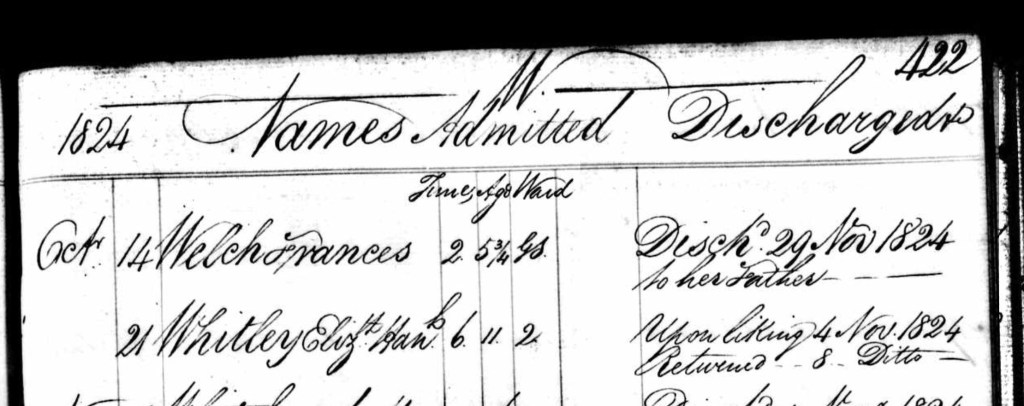 422
W.
1824 Names Admitted Discharged &c
Times Age Ward
Octr 14 Welch Frances 2 5¾ Gs. Dischd 29 Nov 1824
to her Father
21 Whitley Elizth Hanh 6 11 2 Upon liking 4 Nov. 1824
Returned 8 Ditto